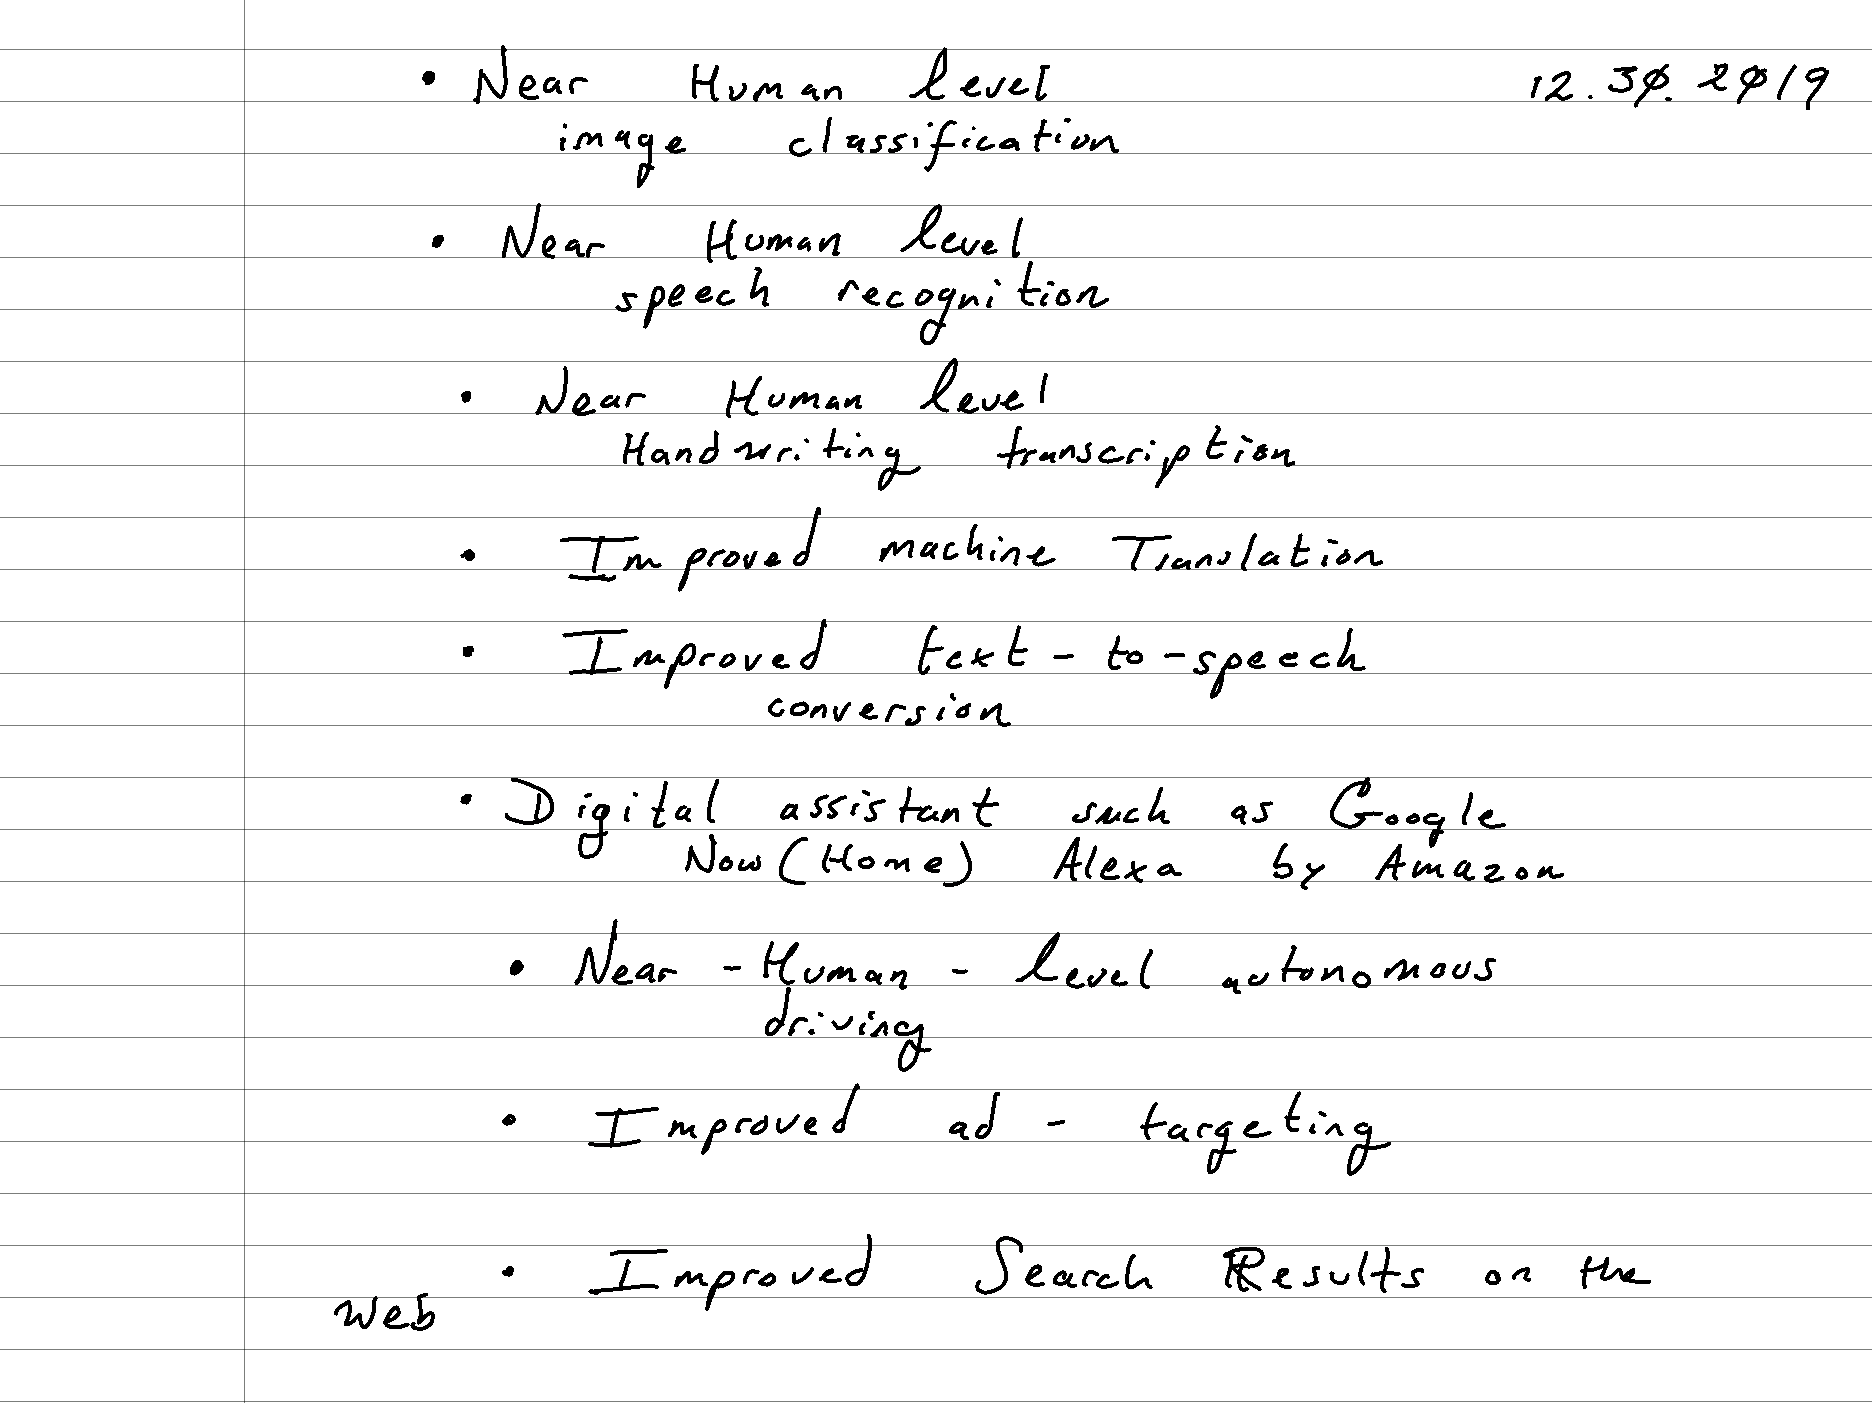 • Near Human level 12.30.2019
image classification
• Near Human level
speech recognition
• Near Human level
Handwriting transcription
• Improved machine Translation
• Improved text-to-speech
conversion
• Digital assistant such as Google
Now (Home) Alexa by Amazon
• Near-Human-level autonomous
driving
• Improved ad-targeting
• Improved Search Results on the
Web